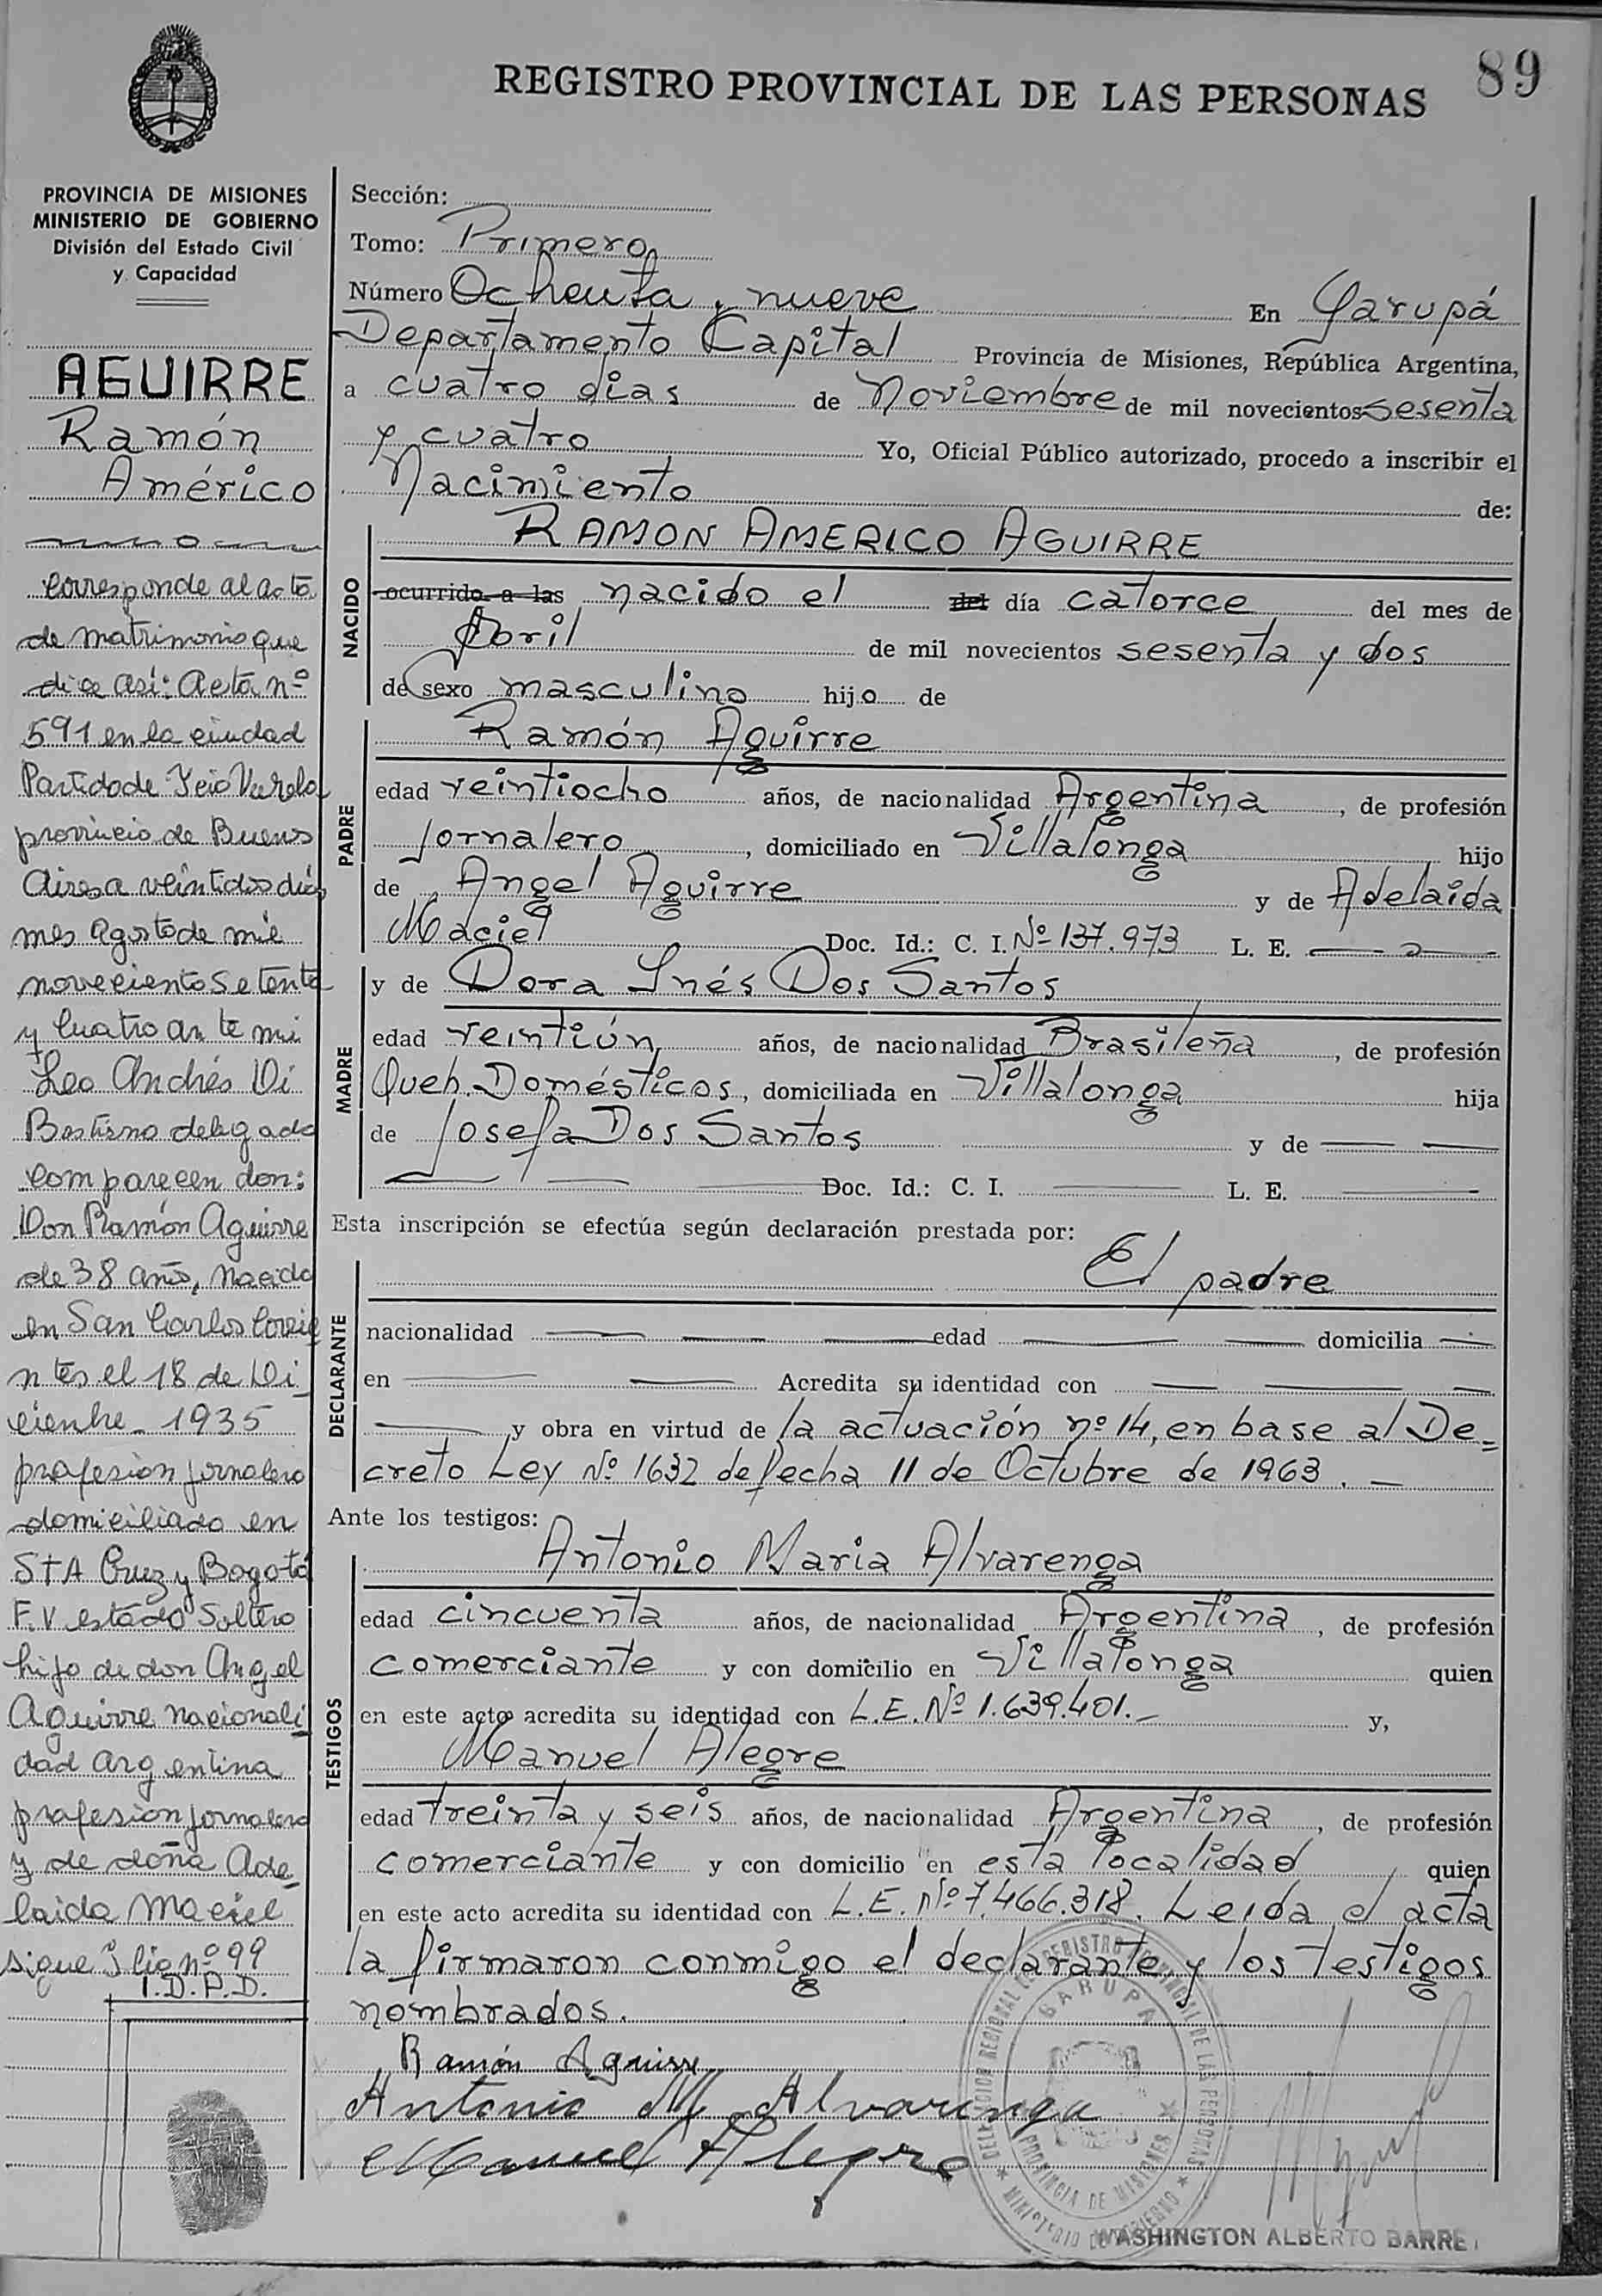 89
REGISTRO PROVINCIAL DE LAS PERSONAS
PROVINCIA DE MISIONES
MINISTERIO DE GOBIERNO
División del Estado Civil
y Capacidad
AGUIRRE
Ramón
Américo
Corresponde al acta
de matrimonio que
dice así: Acta nº
591 en la ciudad
Partido de Fcio Varela
provincia de Buenos
Aires a veintidos días
mes Agosto de mil
novecientos setenta
y cuatro an te mi
Leo Andrés Di
Bastiano delegado
comparecen don:
Don Ramón Aguirre
de 38 años, nacido
en San Carlos Corrie
ntes el 18 de Di
ciembre 1935
profesion jornalero
domiciliado en
STA Cruz y Bogotá
F.V estado Soltero
hijo de don Angel
Aguirre nacionali
dad argentina
profesion jornalero
y de doña Ade
laida Maciel
sigue folio nº 99
I.D.P.D.
Sección:
Tomo: Primero
Número Ochenta y nueve En Garupá
Departamento Capital Provincia de Misiones, República Argentina,
a cuatro días de Noviembre de mil novecientos sesenta
y cuatro Yo, Oficial Público autorizado, procedo a inscribir el
Nacimiento de:
NACIDO
RAMON AMERICO AGUIRRE
ocurrido a las nacido el del día catorce del mes de
Abril de mil novecientos sesenta y dos
de sexo masculino hijo de
PADRE
Ramón Aguirre
edad veintiocho años, de nacionalidad Argentina, de profesión
Jornalero, domiciliado en Villalonga hijo
de Angel Aguirre y de Adelaida
Maciel Doc. Id.: C. I. Nº 137.973 L. E.
MADRE
y de Dora Inés Dos Santos
edad veintiún años, de nacionalidad Brasileña, de profesión
Queh. Domésticos, domiciliada en Villalonga hija
de Josefa Dos Santos y de
Doc. Id.: C. I. L. E.
Esta inscripción se efectúa según declaración prestada por:
DECLARANTE
El padre
nacionalidad edad domicilia
en Acredita su identidad con
y obra en virtud de la actuación nº 14, en base al De=
creto Ley Nº 1632 de fecha 11 de Octubre de 1963.
Ante los testigos:
TESTIGOS
Antonio Maria Alvarenga
edad cincuenta años, de nacionalidad Argentina, de profesión
comerciante y con domicilio en Villalonga quien
en este acto acredita su identidad con L.E. Nº 1.639.401.- y,
Manuel Alegre
edad treinta y seis años, de nacionalidad Argentina, de profesión
comerciante y con domicilio en esta localidad quien
en este acto acredita su identidad con L.E. Nº 7.466.318. Leida el acta
la firmaron conmigo el declarante y los testigos
nombrados.
Ramón Aguirre
Antonio M. Alvarenga
Manuel Alegre
DELEGACION REGIONAL DEL REGISTRO PROVINCIAL DE LAS PERSONAS
GARUPA
PROVINCIA DE MISIONES
MINISTERIO DE GOBIERNO
WASHINGTON ALBERTO BARRE